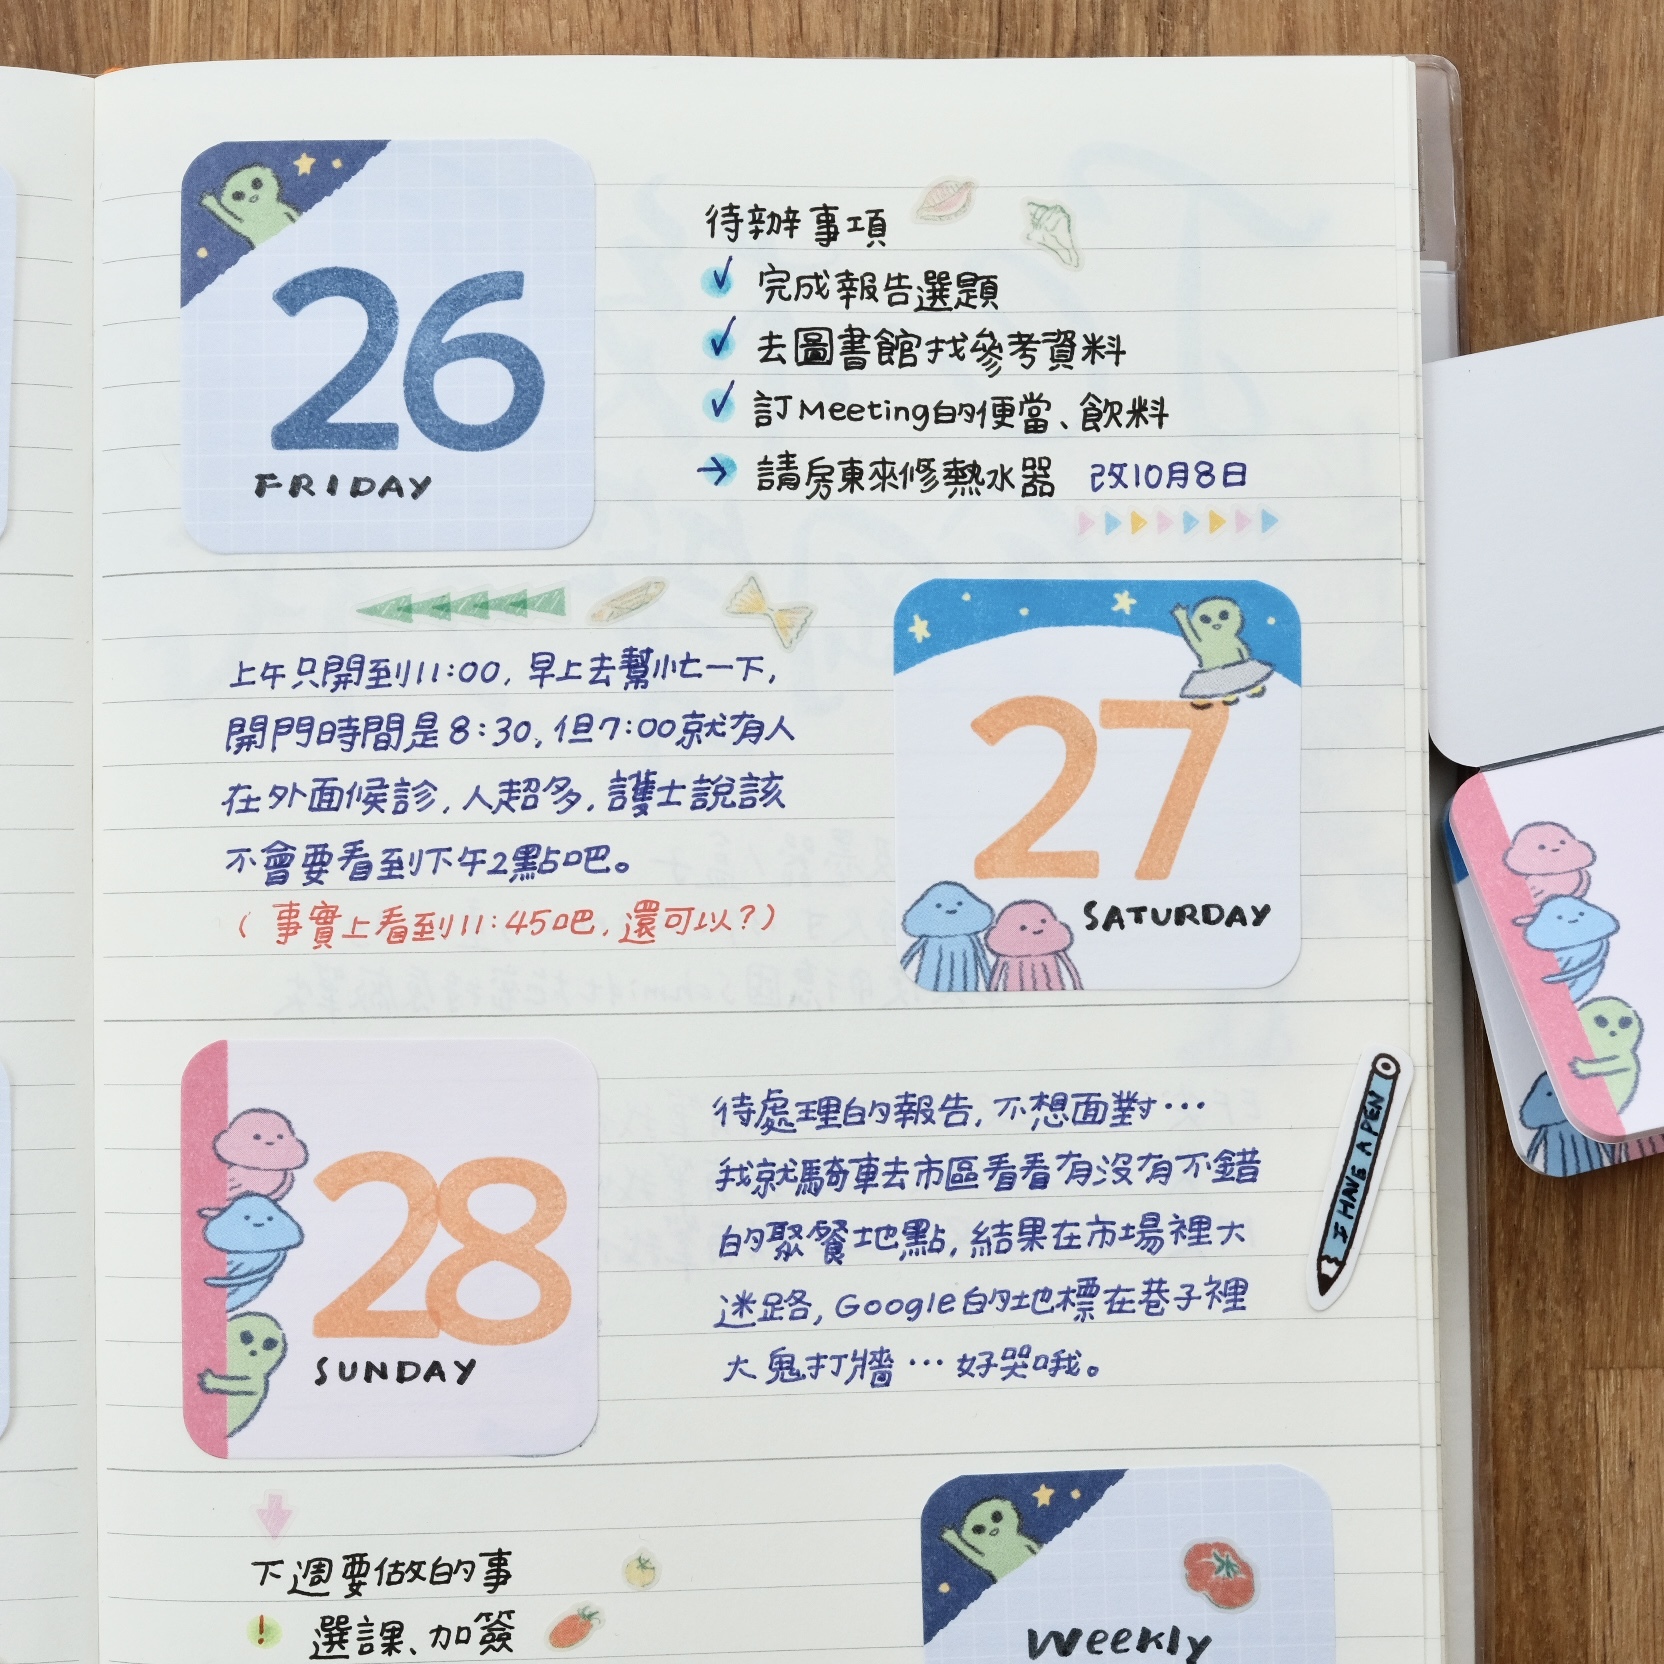 26
FRIDAY
待辦事項
完成報告選題
去圖書館找參考資料
訂Meeting的便當、飲料
請房東來修熱水器 改10月8日
上午只開到11:00, 早上去幫忙一下,
開門時間是8:30, 但7:00就有人
在外面候診, 人超多, 護士說該
不會要看到下午2點吧。
(事實上看到11:45吧, 還可以?)
27
SATURDAY
28
SUNDAY
待處理的報告, 不想面對…
我就騎車去市區看看有沒有不錯
的聚餐地點, 結果在市場裡大
迷路, Google的地標在巷子裡
大鬼打牆…好哭哦。
I HAVE A PEN
下週要做的事
! 選課、加簽
Weekly